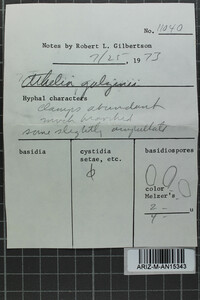 No. 11040
Notes by Robert L. Gilbertson
7/25, 1973
Athelia galzinii
Hyphal characters
clamps abundant
much branched
some slightly ampullate
basidia
cystidia
setae, etc.
basidiospores
color
Melzer's
2 - u
4 -
ARIZ-M-AN15343